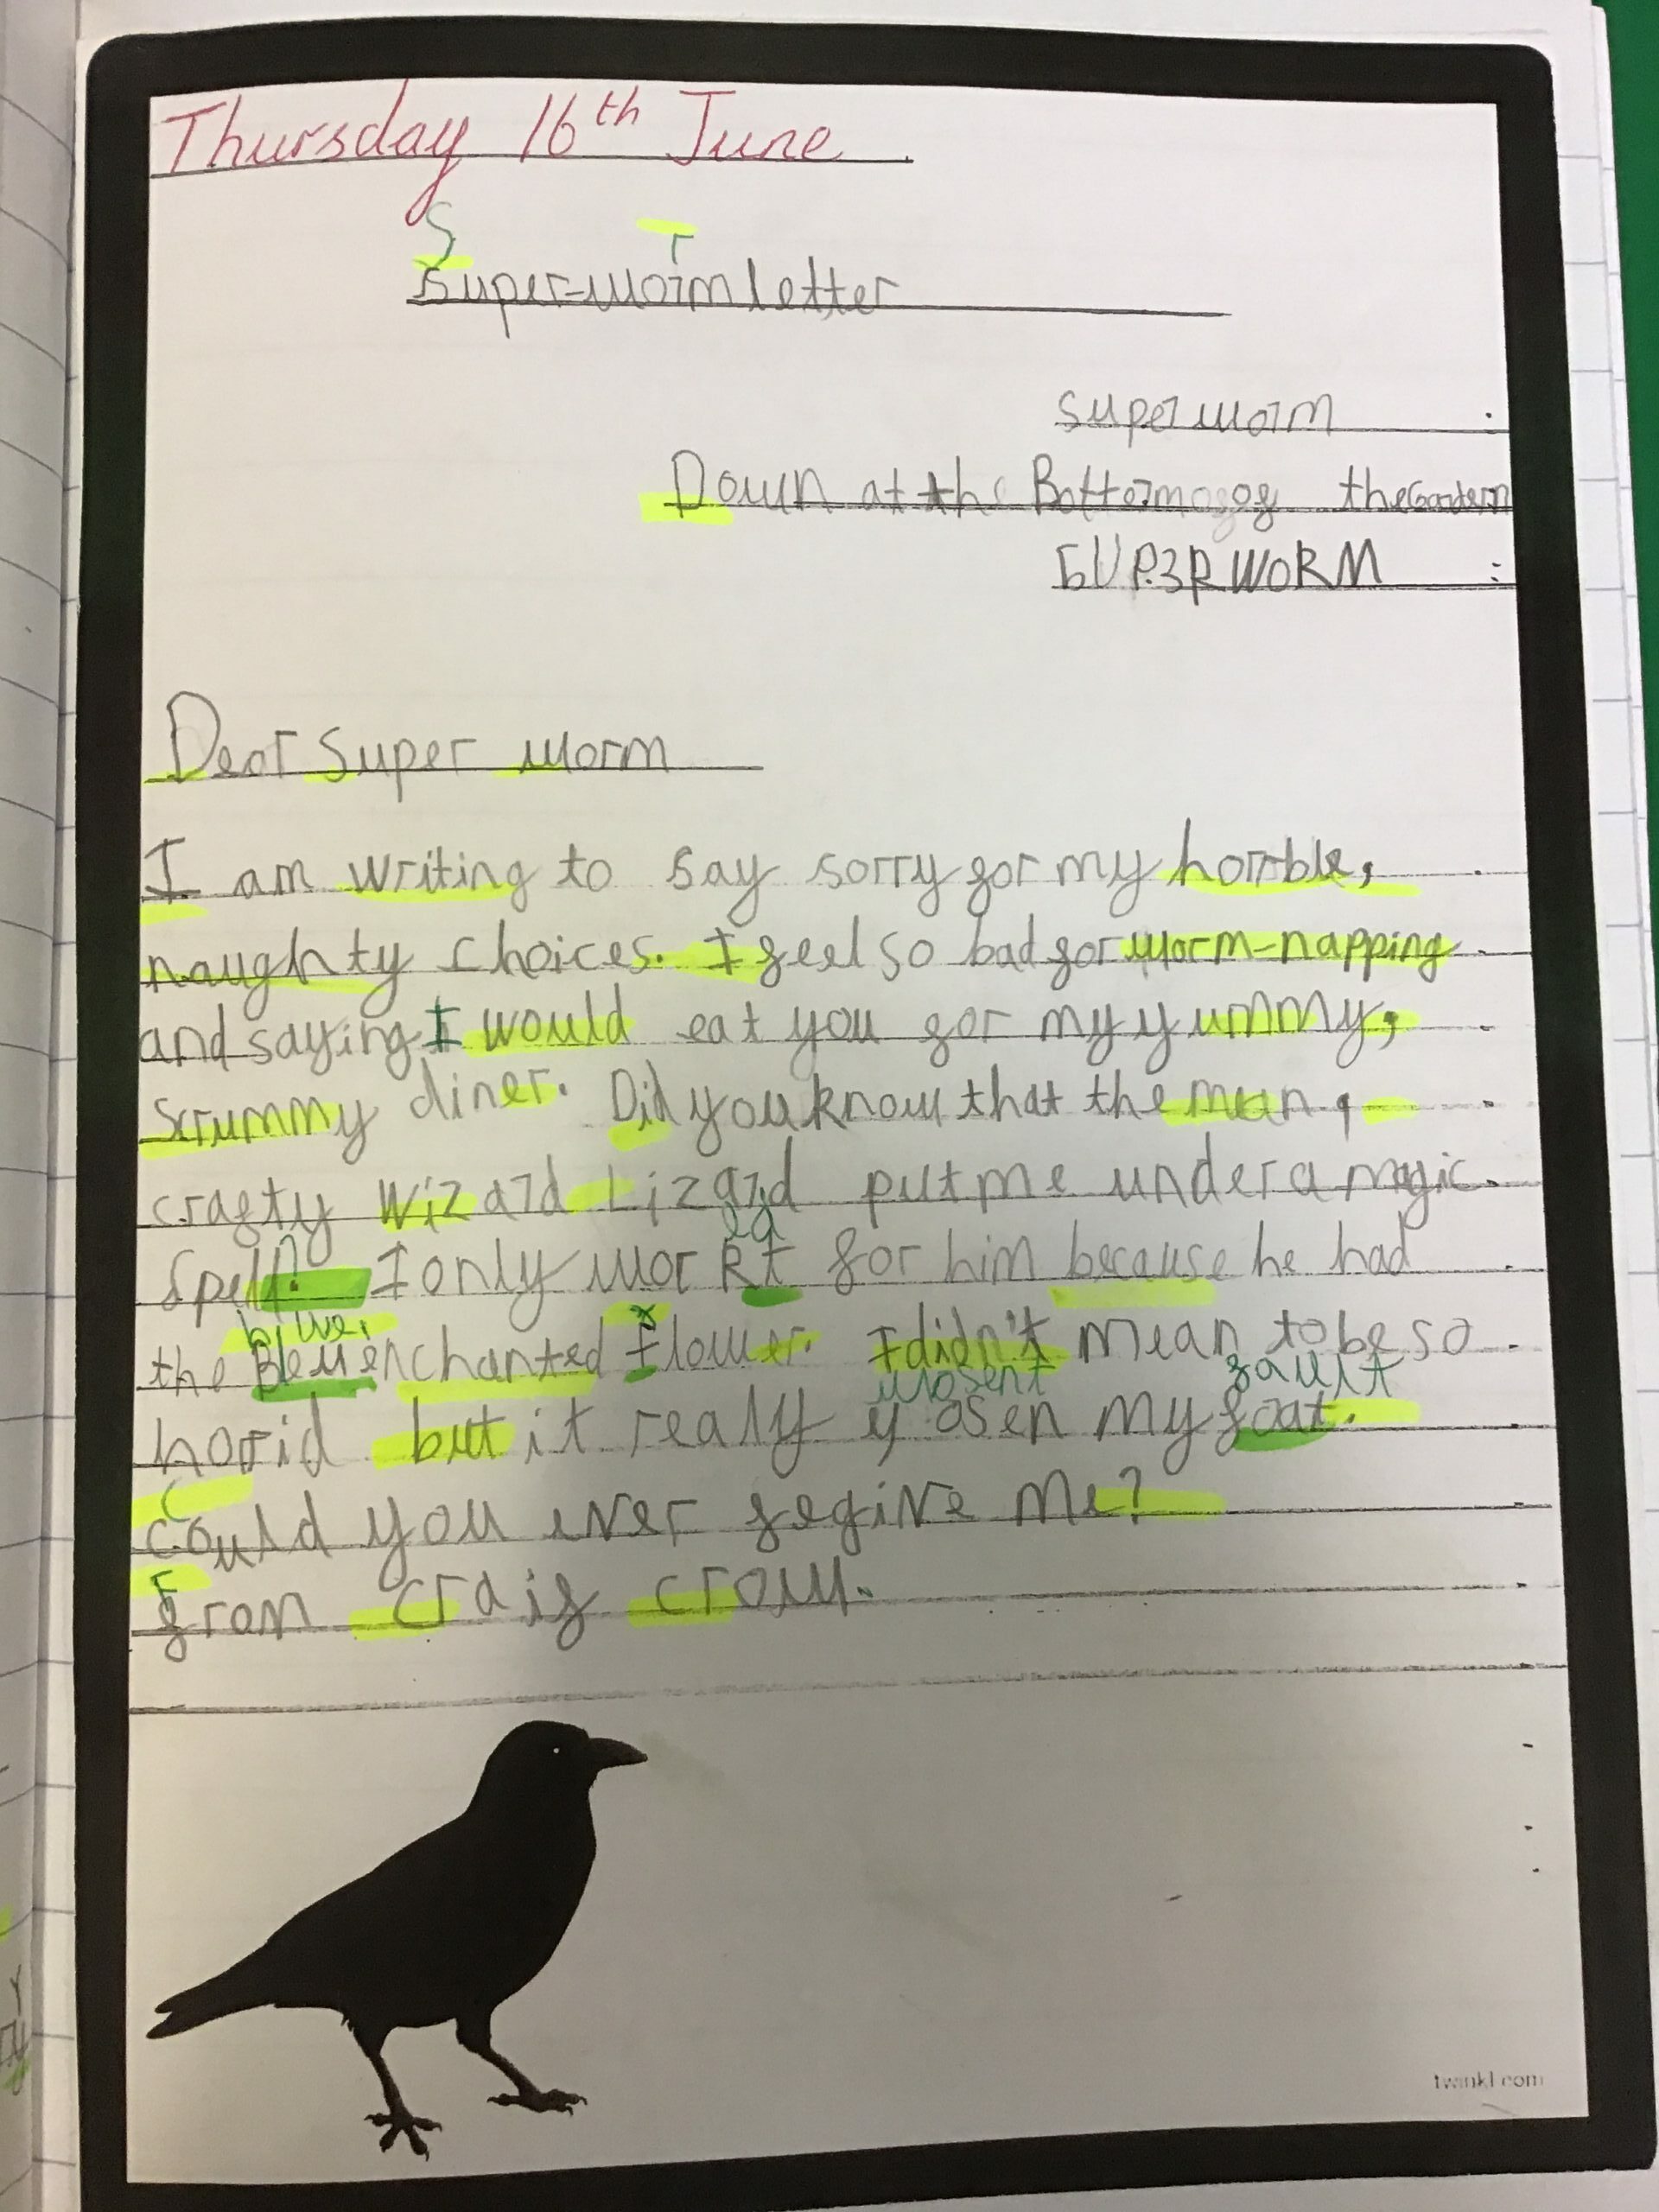 Thursday 16th June
S r
super-worm letter
superworm
Down at the Bottermos of the Gardern
SUP3RWORM
Dear Super worm
I am writing to say sorry for my horrble,
naughty choices. I feel so bad for worm-napping
and saying I would eat you for my yummy,
scrummy diner. Did you know that the mean,
crafty Wizard Lizard put me under a magic
spell? I only worRt for him because he had
ed
blue,
the Bleu enchanted flower. I didn't mean to be so
wosent fault
horid but it really wosen my foat.
Could you ever fegive me?
From craig crow.
twinkl.com